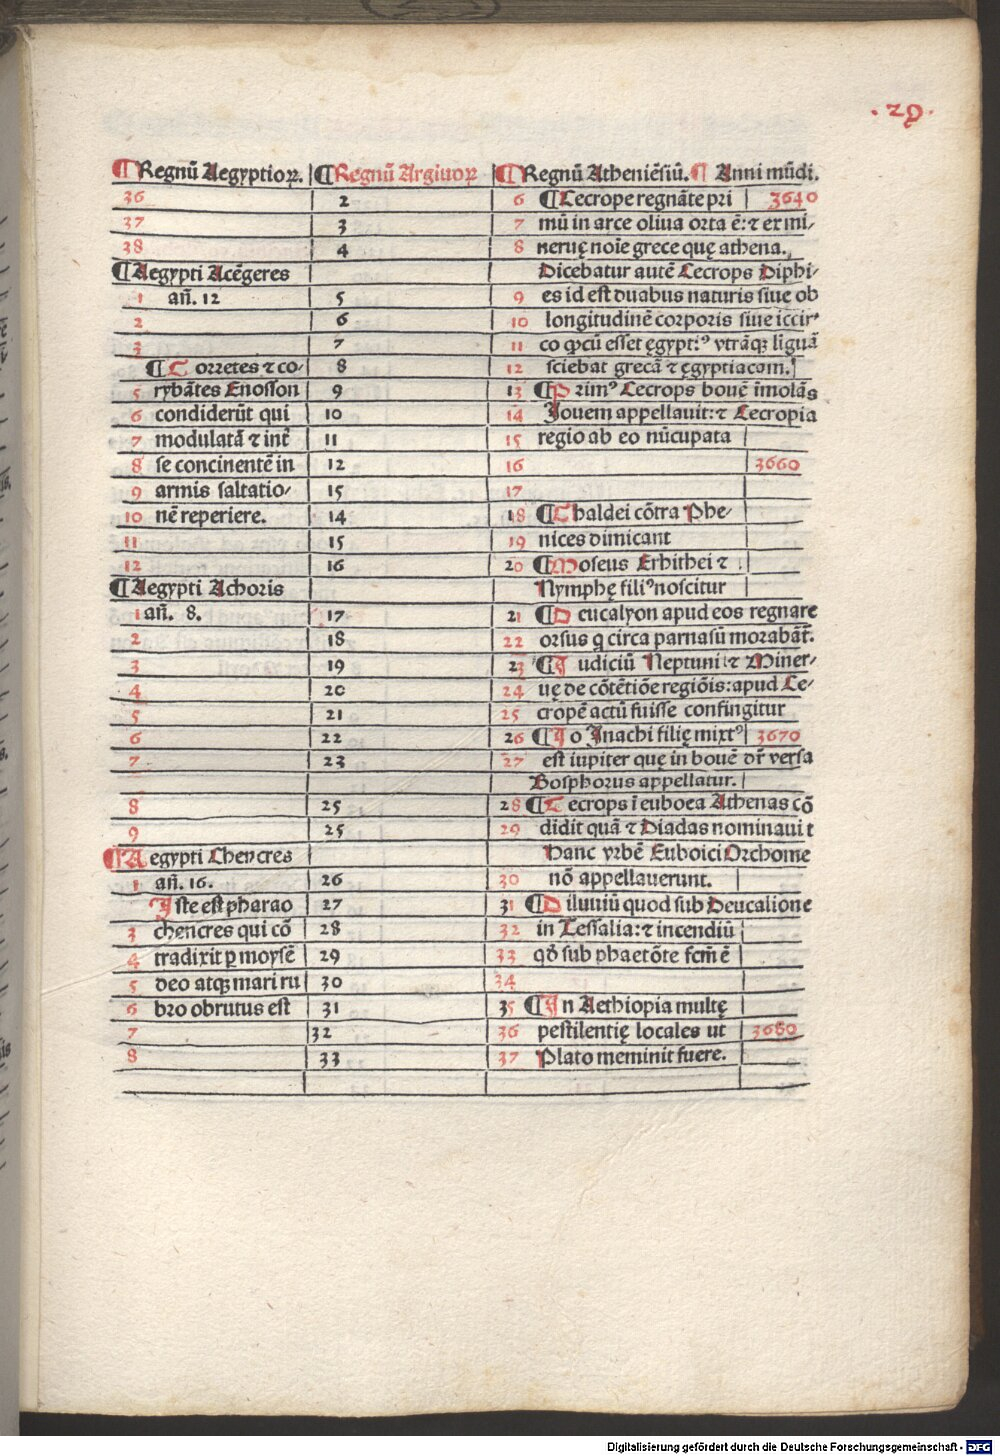 .29.
¶Regnū Aegyptioꝝ. ¶Regnū Argiuoꝝ ¶Regnū Atheniēsiū. ¶ Anni mūdi.
36 2 6 ¶Cecrope regnāte pri 3640
37 3 7 mū in arce oliua orta ē: ⁊ ex mi/
38 4 8 neruę noīe grece quę athena.
¶Aegypti Acēgeres Dicebatur autē Cecrops Diphi/
1 añ. 12 5 9 es id est duabus naturis siue ob
2 6 10 longitudinē corporis siue iccir
3 7 11 co ꝙ cū esset ęgyptiꝰ vtrāqꝫ liguā
¶C orretes ⁊ co/ 8 12 sciebat grecā ⁊ ęgyptiacam.
5 rybātes Enosson 9 13 ¶P rimꝰ Cecrops bouē īmolās
6 condiderūt qui 10 14 Jouem appellauit: ⁊ Cecropia
7 modulatā ⁊ int̄ 11 15 regio ab eo nūcupata
8 se concinentē in 12 16 3660
9 armis saltatio/ 15 17
10 nē reperiere. 14 18 ¶C haldei cōtra Phe/
11 15 19 nices dimicant
12 16 20 ¶Moseus Erhithei ⁊
¶Aegypti Achoris Nymphę filiꝰ noscitur
1 añ. 8. 17 21 ¶D eucalyon apud eos regnare
2 18 22 orsus q circa parnasū morabāt̄.
3 19 23 ¶J udiciū Neptuni ⁊ Miner/
4 20 24 uę de cōtētiōe regiōis: apud Ce/
5 21 25 cropē actū fuisse confingitur
6 22 26 ¶J o Jnachi filię mixtꝰ 3670
7 23 27 est iupiter quę in bouē dr̄ versa
Bosphorus appellatur.
8 25 28 ¶C ecrops ī euboea Athenas cō
9 25 29 didit quā ⁊ Diadas nominauit
¶A egypti Chencres hanc vrbē Euboici Orchome
1 añ. 16. 26 30 nō appellauerunt.
J ste est pharao 27 31 ¶D iluuiū quod sub Deucalione
3 chencres qui cō 28 32 in Tessalia: ⁊ incendiū
4 tradixit p moysē 29 33 qđ sub phaetōte fcm̄ ē
5 deo atqꝫ mari ru 30 34
6 bro obrutus est 31 35 ¶J n Aethiopia multę
7 32 36 pestilentię locales ut 3680
8 33 37 Plato meminit fuere.
Digitalisierung gefördert durch die Deutsche Forschungsgemeinschaft - DFG